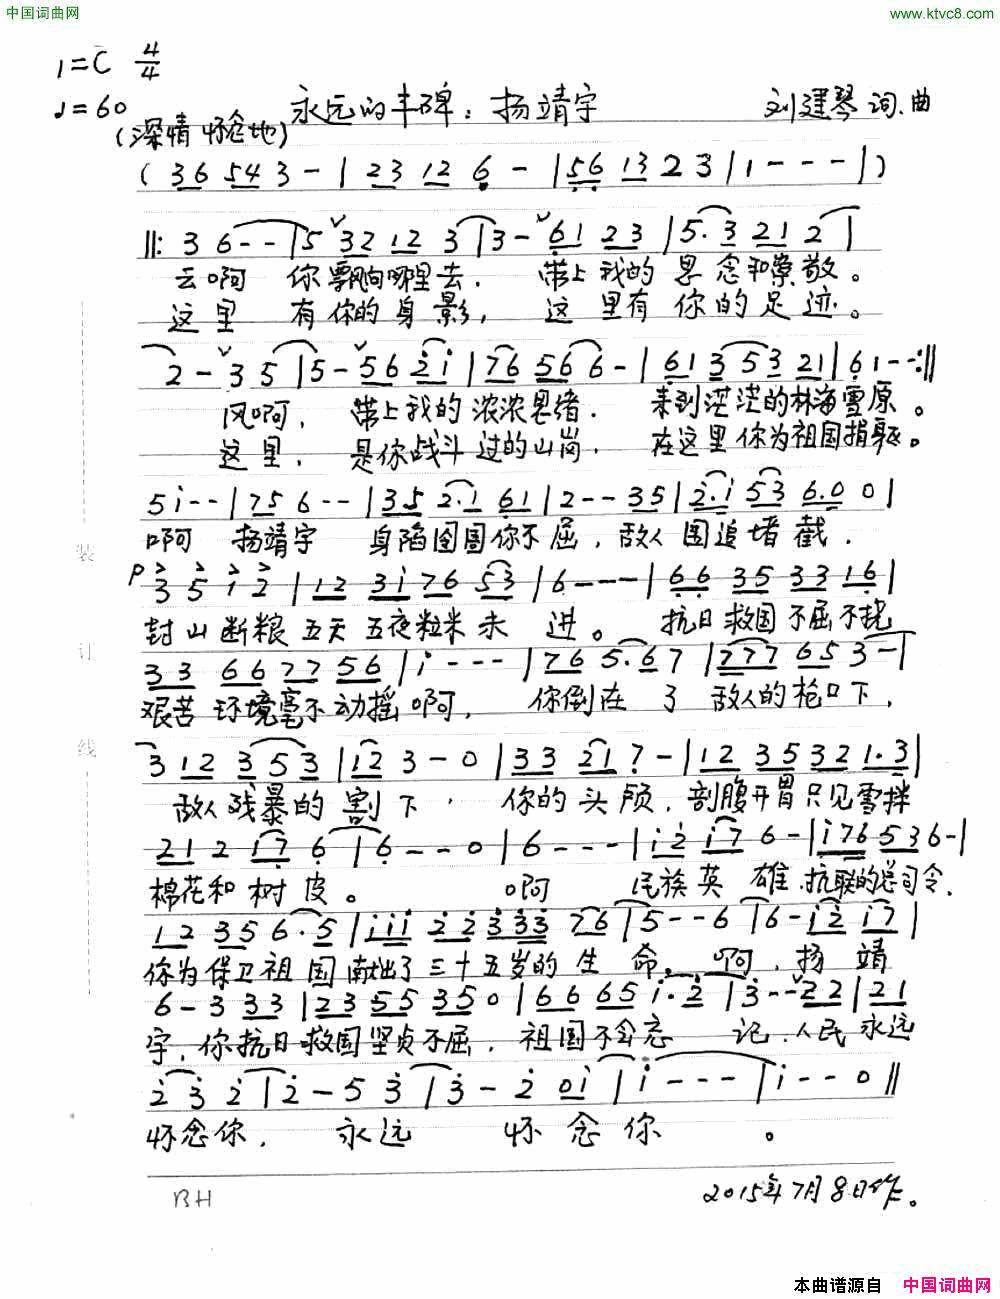 中国词曲网
www.ktvc8.com
1=C 4/4
♩=60
永远的丰碑：扬靖宇
刘建琴 词.曲
(深情 怀念地)
( 3 6 5 4 3 - | 2 3 1 2 6 - | 5 6 1 3 2 3 | 1 - - - | )
||: 3 6 - - | 5 3 2 1 2 3 | 3 - 6 1 2 3 | 5 . 3 2 1 2 |
云 啊 你 飘向哪里去. 带上 我的 思 念和崇敬。
这 里 有 你的 身 影， 这 里有 你的 足 迹。
2 - 3 5 | 5 - 5 6 2 1 | 7 6 5 6 6 - | 6 1 3 5 3 2 1 | 6 1 - - :||
风啊， 带上我的 浓浓思绪. 来到茫茫的林海雪原。
这 里， 是你战斗 过的山岗， 在这里 你为祖国捐躯。
5 i - - | 7 5 6 - - | 3 5 2 . 1 6 1 | 2 - - 3 5 | 2 . i 5 3 6 . 0 0 |
啊 扬靖宇 身陷囹圄你不屈，敌人 围追堵 截.
P 3 5 1 2 | 1 2 3 i 7 6 5 3 | 6 - - - | 6 6 3 5 3 3 1 6 |
封 山 断粮 五天 五夜粒米 未 进。 抗日救国 不屈不挠
3 3 6 6 7 7 5 6 | i - - - | 7 6 5 . 6 7 | 7 7 7 6 5 3 - |
艰苦 环境毫不动摇 啊， 你倒在 了 敌人的枪口下，
3 1 2 3 5 3 | 1 2 3 - 0 | 3 3 2 1 7 - | 1 2 3 5 3 2 1 . 3 |
敌人残暴的 割 下 ， 你的 头 颅，剖腹开胃只见雪拌
2 1 2 i 7 6 | 6 - - 0 | 6 - - - | i 2 i 7 6 - | i 7 6 5 3 6 - |
棉花和 树 皮。 啊 民族 英 雄.抗联的总司令.
1 2 3 5 6 . 5 | i i i 2 2 3 3 3 7 6 | 5 - - 6 | 6 - i 2 i 7 |
你为保卫祖 国 献出了 三十五岁的 生 命。 啊，扬 靖
6 - 3 3 3 | 2 3 5 5 3 5 0 | 6 6 6 5 i . 2 | 3 - - 2 2 | 2 1
宇，你抗日 救国坚贞不屈，祖国不会忘 记.人民 永远
2 3 2 | 2 - 5 3 | 3 - 2 0 i | i - - - | i - - 0 ||
怀念你， 永 远 怀 念 你 。
装
订
线
BH
2015年7月8日作。
本曲谱源自 中国词曲网